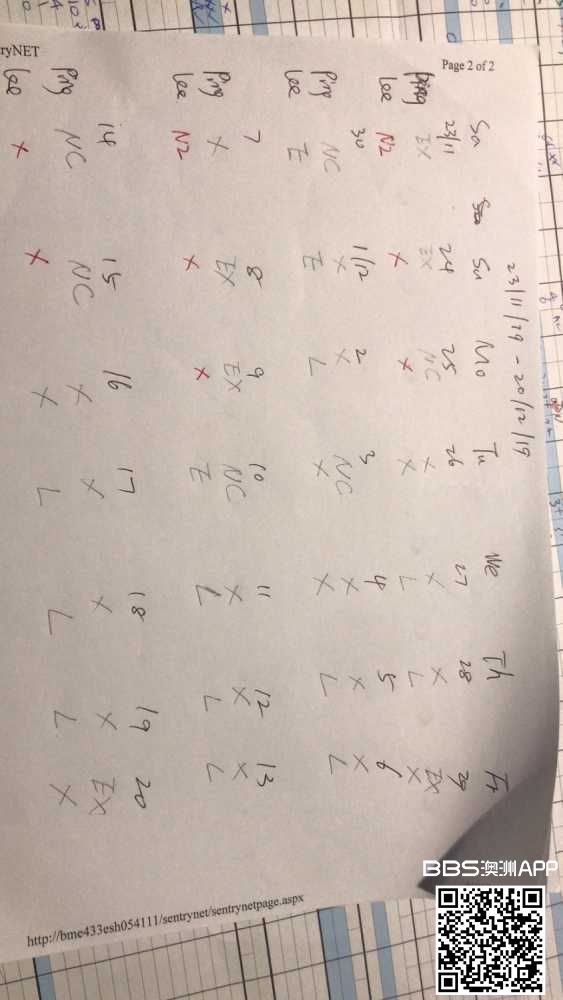 ryNET
Page 2 of 2
23/11/19 - 20/12/19
Sa Su Mo Tu We Th Fr
23/11 24 25 26 27 28 29
Ping EX EX NC X X X EX
Lee N2 X X X L L X
30 1/12 2 3 4 5 6
Ping NC X X NC X X X
Lee E E L X X L L
7 8 9 10 11 12 13
Ping X EX EX NC X X X
Lee N2 X X E L L L
14 15 16 17 18 19 20
Ping NC NC X X X X EX
Lee X X X L L L X
http://bme433esh054111/sentrynet/sentrynetpage.aspx
BBS澳洲APP